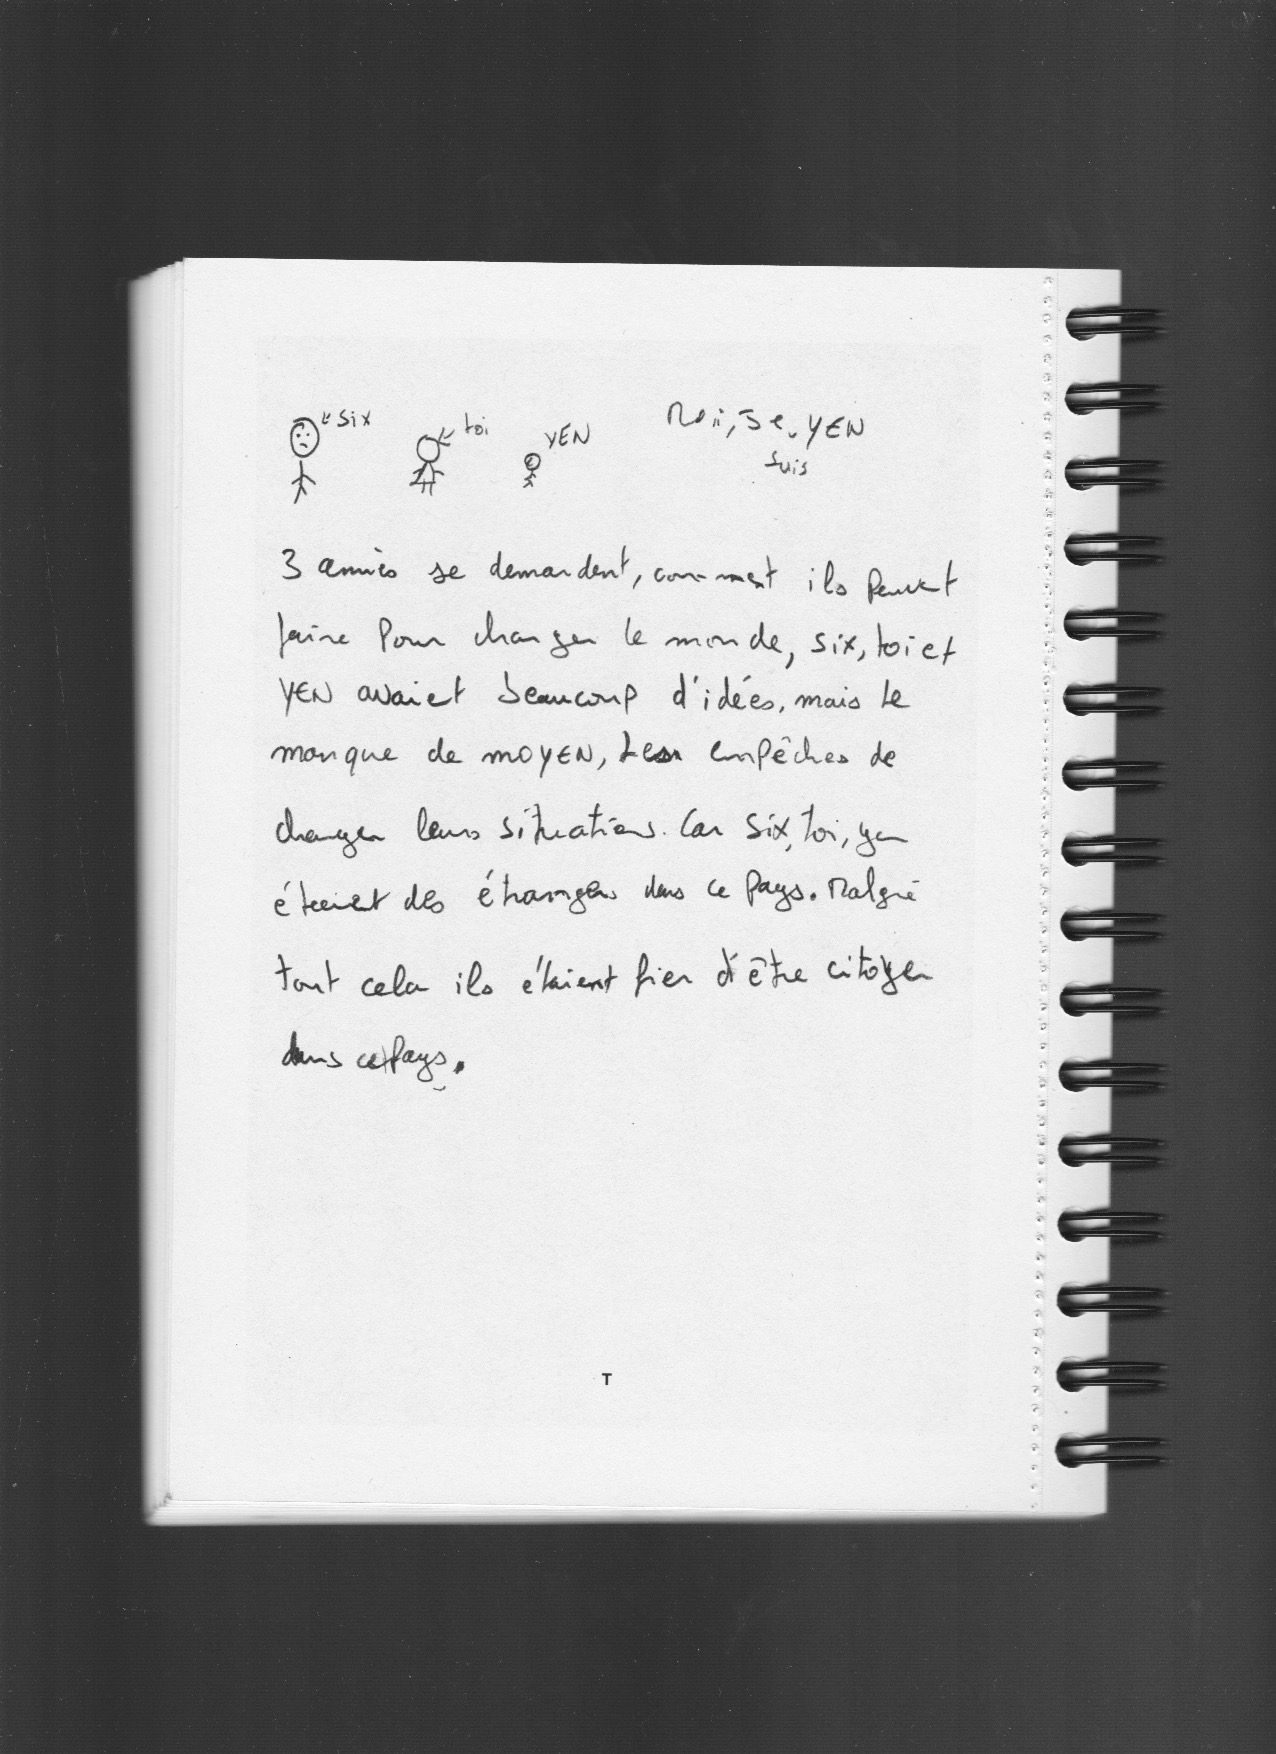 six toi YEN Moi, Je YEN
suis
3 amies se demandent, comment ils peuvent
faire Pour changer le monde, six, toi et
YEN avaient beaucoup d'idées, mais le
manque de moYEN, les empêches de
changer leurs situations. Car six, toi, yen
étaient des étrangers dans ce Pays. Malgré
tout cela ils étaient fier d'être citoyen
dans ce Pays.
T